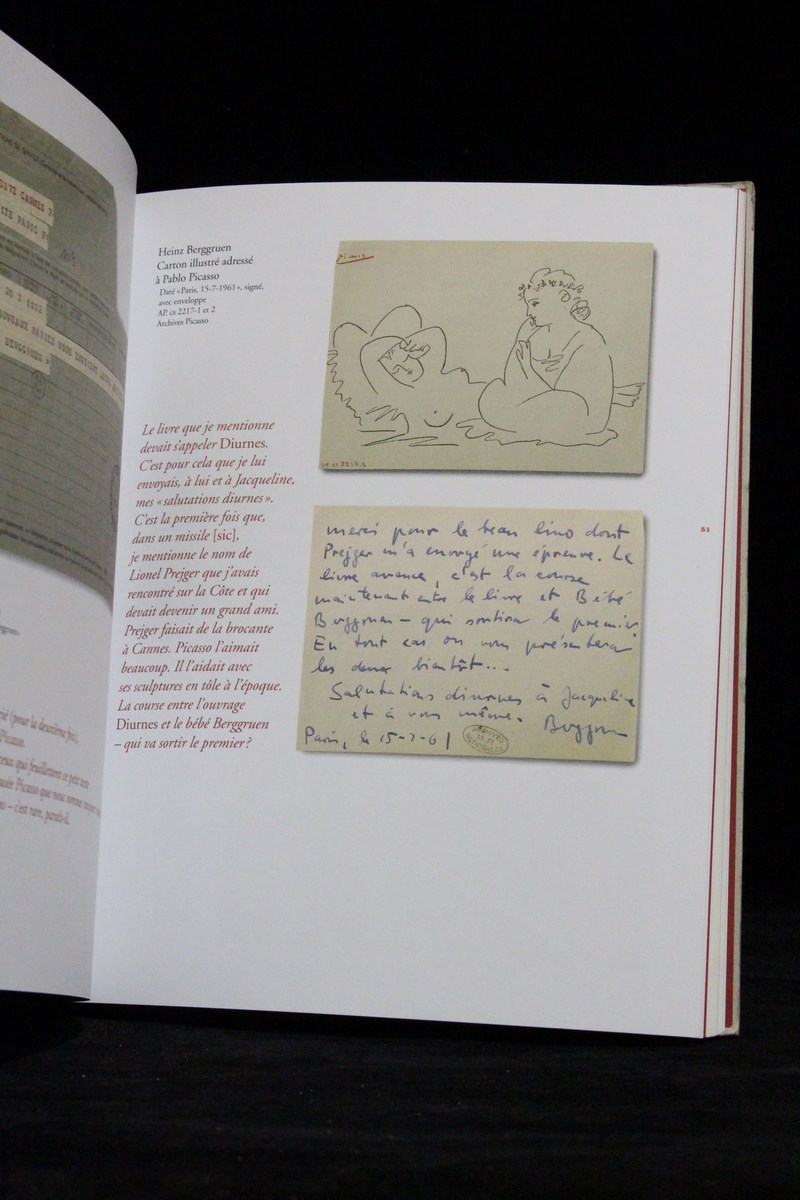 OSTZ CANNES
ITE PARIS
BERGGRUEN
Heinz Berggruen
Carton illustré adressé
à Pablo Picasso
Daté « Paris, 15-7-1961 », signé,
avec enveloppe
AP. cs 2217-1 et 2
Archives Picasso
Picasso
Le livre que je mentionne
devait s'appeler Diurnes.
C'est pour cela que je lui
envoyais, à lui et à Jacqueline,
mes « salutations diurnes ».
C'est la première fois que,
dans un missile [sic],
je mentionne le nom de
Lionel Prejger que j'avais
rencontré sur la Côte et qui
devait devenir un grand ami.
Prejger faisait de la brocante
à Cannes. Picasso l'aimait
beaucoup. Il l'aidait avec
ses sculptures en tôle à l'époque.
La course entre l'ouvrage
Diurnes et le bébé Berggruen
– qui va sortir le premier ?
merci pour le beau lino dont
Prejger m'a envoyé une épreuve. Le
livre avance, c'est la course
maintenant entre le livre et Bébé
Berggruen – qui sortira le premier.
En tout cas on vous présentera
les deux bientôt...
Salutations diurnes à Jacqueline
et à vous même. Berggruen
Paris, le 15-7-61
61
(pour la deuxième fois),
Picasso.
ceux qui feuillettent ce petit
musée Picasso que nous sommes
– c'est rare, paraît-il.